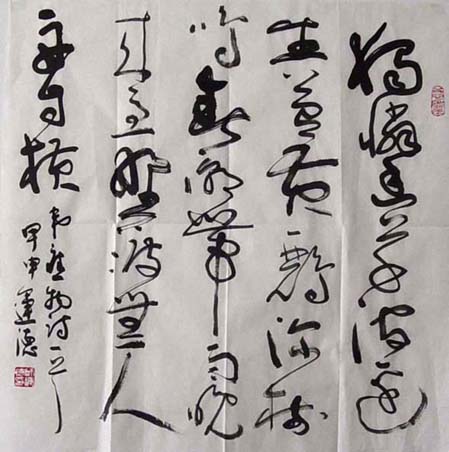 獨憐幽草澗邊
生上有黃鸝深樹
鳴春潮帶雨晚
來急野渡無人
舟自橫
韋應物詩一首
甲申運德